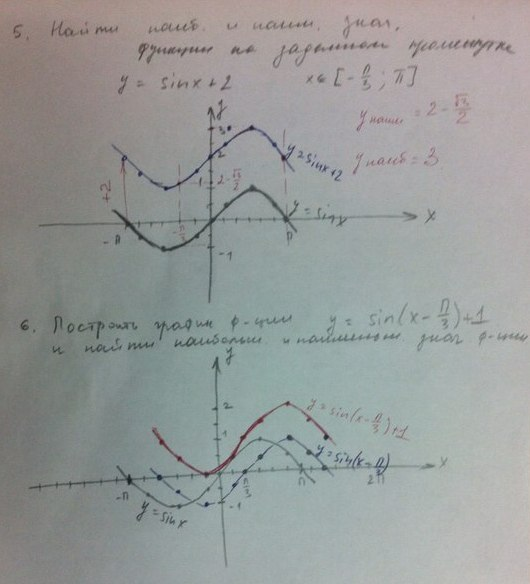 5. Найти наиб. и наим. знач.
функции на заданном промежутке
y = sin x + 2   x∈[-π/3; π]
y наим = 2 - √3/2
y наиб = 3
y
3
2
1
2-√3/2
y = sin x + 2
+2
y = sin x
-π
-π/3
π
x
-1
6. Построить график ф-ции y = sin(x - π/3) + 1
и найти наибольш и наименьш знач ф-ции
y
2
1
y = sin(x - π/3) + 1
y = sin(x - π/3)
x
-π
π
2π
-1
y = sin x